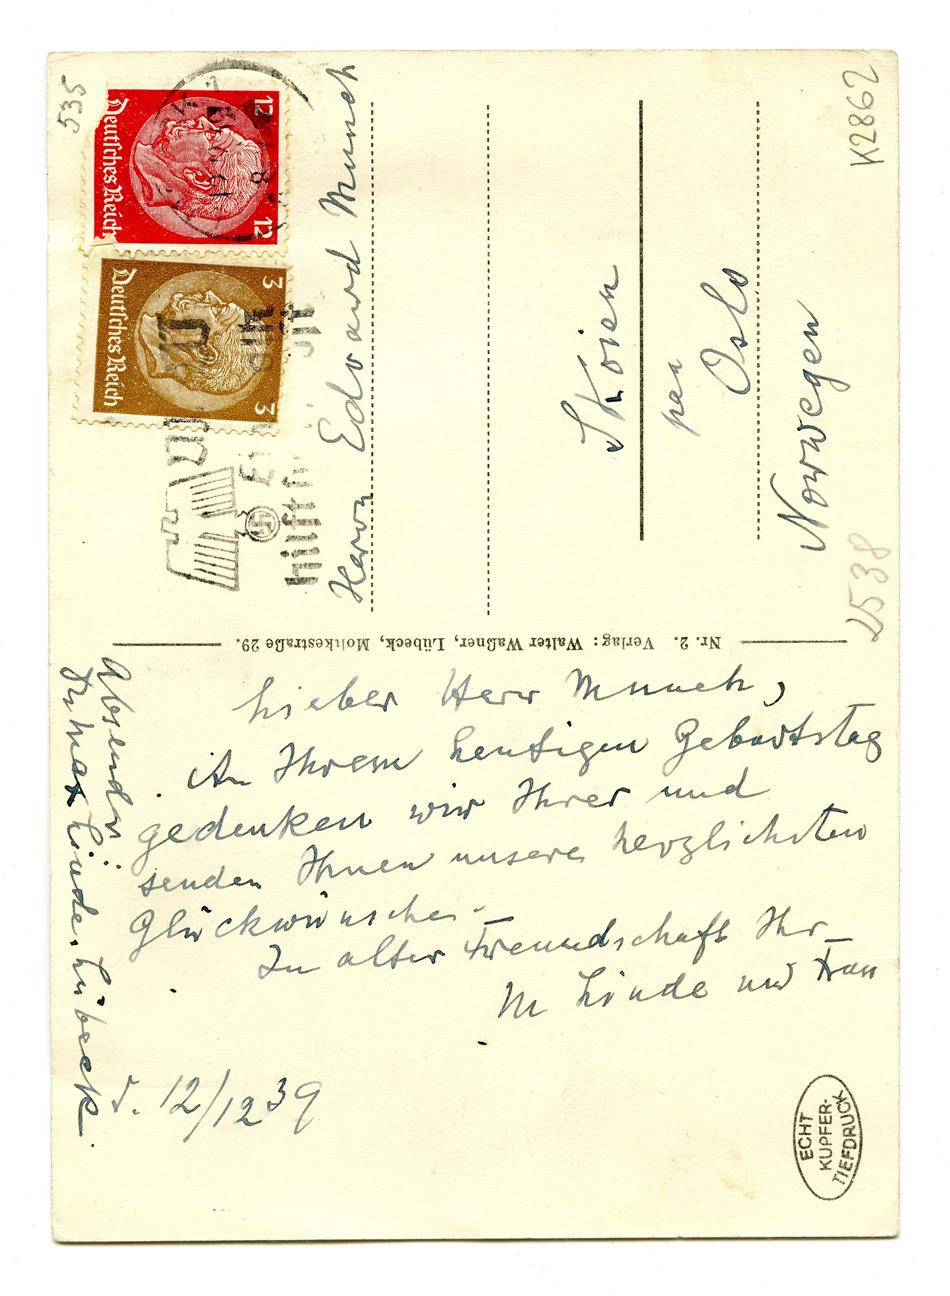 535
K2862
12 12
Deutsches Reich
3 3
Deutsches Reich
hilft
Herrn Edvard Munch
Skoien
per
Oslo
Norwegen
2538
Nr. 2. Verlag: Walter Waßner, Lübeck, Moltkestraße 29.
Absender:
Dr Max Linde. Lübeck.
Lieber Herr Munch,
An Ihrem heutigen Geburtstag
gedenken wir Ihrer und
senden Ihnen unsere herzlichsten
Glückwünsche. —
In alter Freundschaft Ihr
M Linde und Frau
d. 12/12 39
ECHT
KUPFER-
TIEFDRUCK